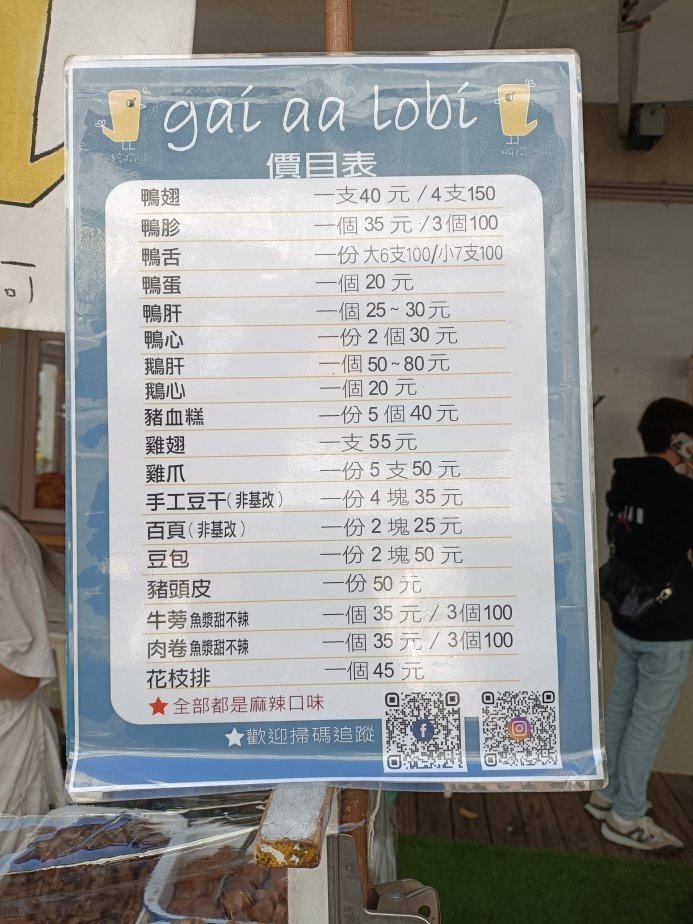 gai aa lobi
價目表
鴨翅 一支40 元 / 4支150
鴨胗 一個 35 元 / 3個100
鴨舌 一份 大6支100/小7支100
鴨蛋 一個 20 元
鴨肝 一個 25~30元
鴨心 一份 2 個 30 元
鵝肝 一個 50~80元
鵝心 一個 20 元
豬血糕 一份 5 個 40 元
雞翅 一支 55元
雞爪 一份 5 支 50 元
手工豆干(非基改) 一份 4 塊 35 元
百頁(非基改) 一份 2 塊 25 元
豆包 一份 2 塊 50 元
豬頭皮 一份 50 元
牛蒡魚漿甜不辣 一個 35 元 / 3個100
肉卷魚漿甜不辣 一個 35 元 / 3個100
花枝排 一個 45 元
★全部都是麻辣口味
★歡迎掃碼追蹤
司